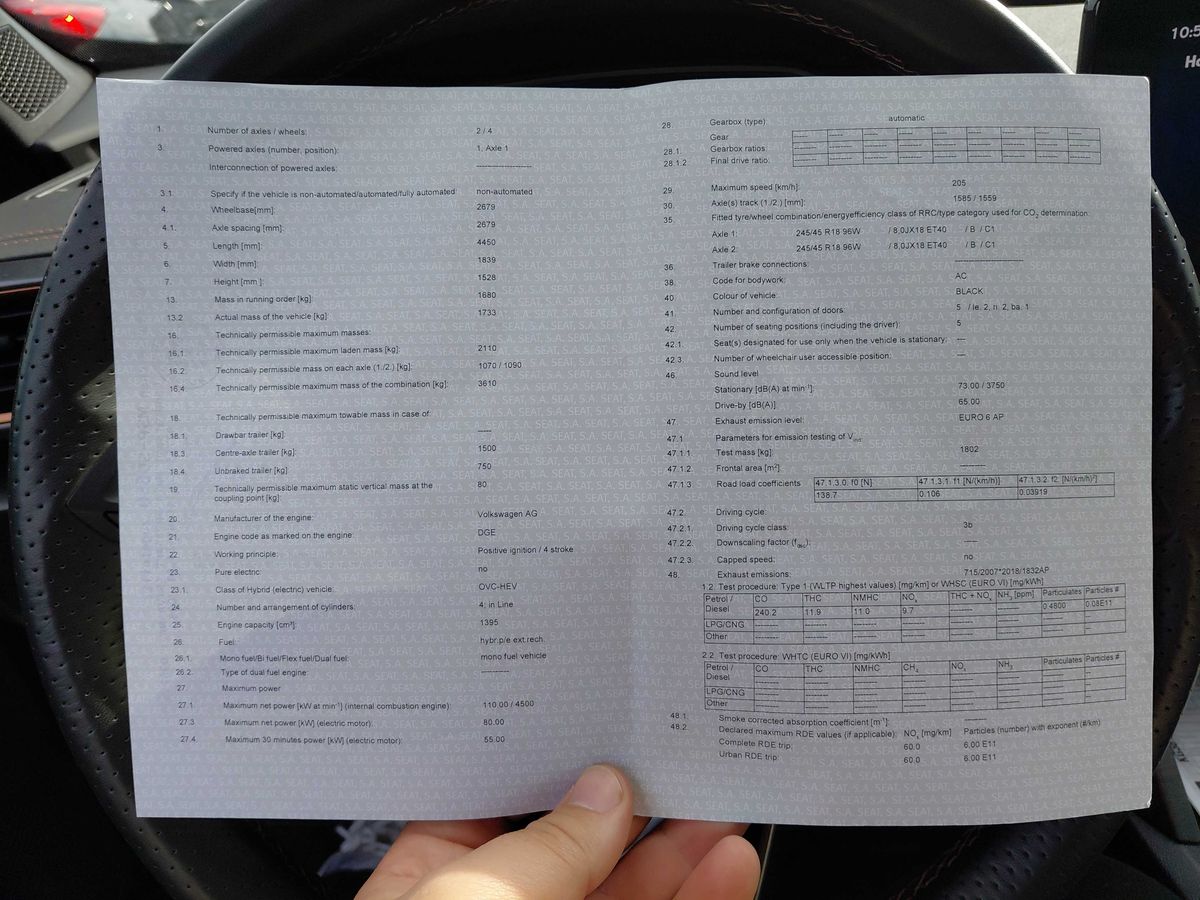 1. Number of axles / wheels: 2 / 4
3. Powered axles (number, position): 1, Axle 1
Interconnection of powered axles: --------------------
3.1. Specify if the vehicle is non-automated/automated/fully automated: non-automated
4. Wheelbase[mm]: 2679
4.1. Axle spacing [mm]: 2679
5. Length [mm]: 4450
6. Width [mm]: 1839
7. Height [mm ]: 1528
13. Mass in running order [kg]: 1680
13.2 Actual mass of the vehicle [kg]: 1733
16. Technically permissible maximum masses:
16.1. Technically permissible maximum laden mass [kg]: 2110
16.2. Technically permissible mass on each axle (1./2.) [kg]: 1070 / 1090
16.4. Technically permissible maximum mass of the combination [kg]: 3610
18. Technically permissible maximum towable mass in case of:
18.1. Drawbar trailer [kg]: -----
18.3. Centre-axle trailer [kg]: 1500
18.4. Unbraked trailer [kg]: 750
19. Technically permissible maximum static vertical mass at the 80
coupling point [kg]:
20. Manufacturer of the engine: Volkswagen AG
21. Engine code as marked on the engine: DGE
22. Working principle: Positive ignition / 4 stroke
23. Pure electric: no
23.1. Class of Hybrid (electric) vehicle: OVC-HEV
24. Number and arrangement of cylinders: 4; in Line
25. Engine capacity [cm³]: 1395
26. Fuel: hybr.p/e ext.rech.
26.1. Mono fuel/Bi fuel/Flex fuel/Dual fuel: mono fuel vehicle
26.2. Type of dual fuel engine: ----------
27. Maximum power
27.1. Maximum net power [kW at min⁻¹] (internal combustion engine): 110.00 / 4500
27.3 Maximum net power [kW] (electric motor): 80.00
27.4. Maximum 30 minutes power [kW] (electric motor): 55.00
28. Gearbox (type): automatic
Gear
28.1. Gearbox ratios
28.1.2. Final drive ratio:
29. Maximum speed [km/h]: 205
30. Axle(s) track (1./2.) [mm]: 1585 / 1559
35. Fitted tyre/wheel combination/energyefficiency class of RRC/type category used for CO₂ determination:
Axle 1: 245/45 R18 96W / 8,0JX18 ET40 / B / C1
Axle 2: 245/45 R18 96W / 8,0JX18 ET40 / B / C1
36. Trailer brake connections: --------------------
38. Code for bodywork: AC
40. Colour of vehicle: BLACK
41. Number and configuration of doors: 5 / le. 2, ri. 2, ba. 1
42. Number of seating positions (including the driver): 5
42.1. Seat(s) designated for use only when the vehicle is stationary: ---
42.3. Number of wheelchair user accessible position: ---
46. Sound level
Stationary [dB(A) at min⁻¹]: 73.00 / 3750
Drive-by [dB(A)]: 65.00
47. Exhaust emission level: EURO 6 AP
47.1. Parameters for emission testing of V
47.1.1. Test mass [kg]: 1802
47.1.2. Frontal area [m²]: --------
47.1.3. Road load coefficients 47.1.3.0. f0 [N]: 47.1.3.1. f1 [N/(km/h)]: 47.1.3.2. f2 [N/(km/h)²]
138.7 0.106 0.03919
47.2. Driving cycle:
47.2.1. Driving cycle class: 3b
47.2.2. Downscaling factor (f dsc): ----
47.2.3. Capped speed: no
48. Exhaust emissions: 715/2007*2018/1832AP
1.2. Test procedure: Type 1 (WLTP highest values) [mg/km] or WHSC (EURO VI) [mg/kWh]
Petrol / CO THC NMHC NOₓ THC + NOₓ NH₃ [ppm] Particulates Particles #
Diesel 240.2 11.9 11.0 9.7 -------- -------- 0.4800 0.08E11
LPG/CNG
Other
2.2. Test procedure: WHTC (EURO VI) [mg/kWh]
Petrol / CO THC NMHC CH₄ NOₓ NH₃ Particulates Particles #
Diesel
LPG/CNG
Other
48.1. Smoke corrected absorption coefficient [m⁻¹]: --------
48.2. Declared maximum RDE values (if applicable): NOₓ [mg/km] Particles (number) with exponent (#/km)
Complete RDE trip: 60.0 6.00 E11
Urban RDE trip: 60.0 6.00 E11
10:5